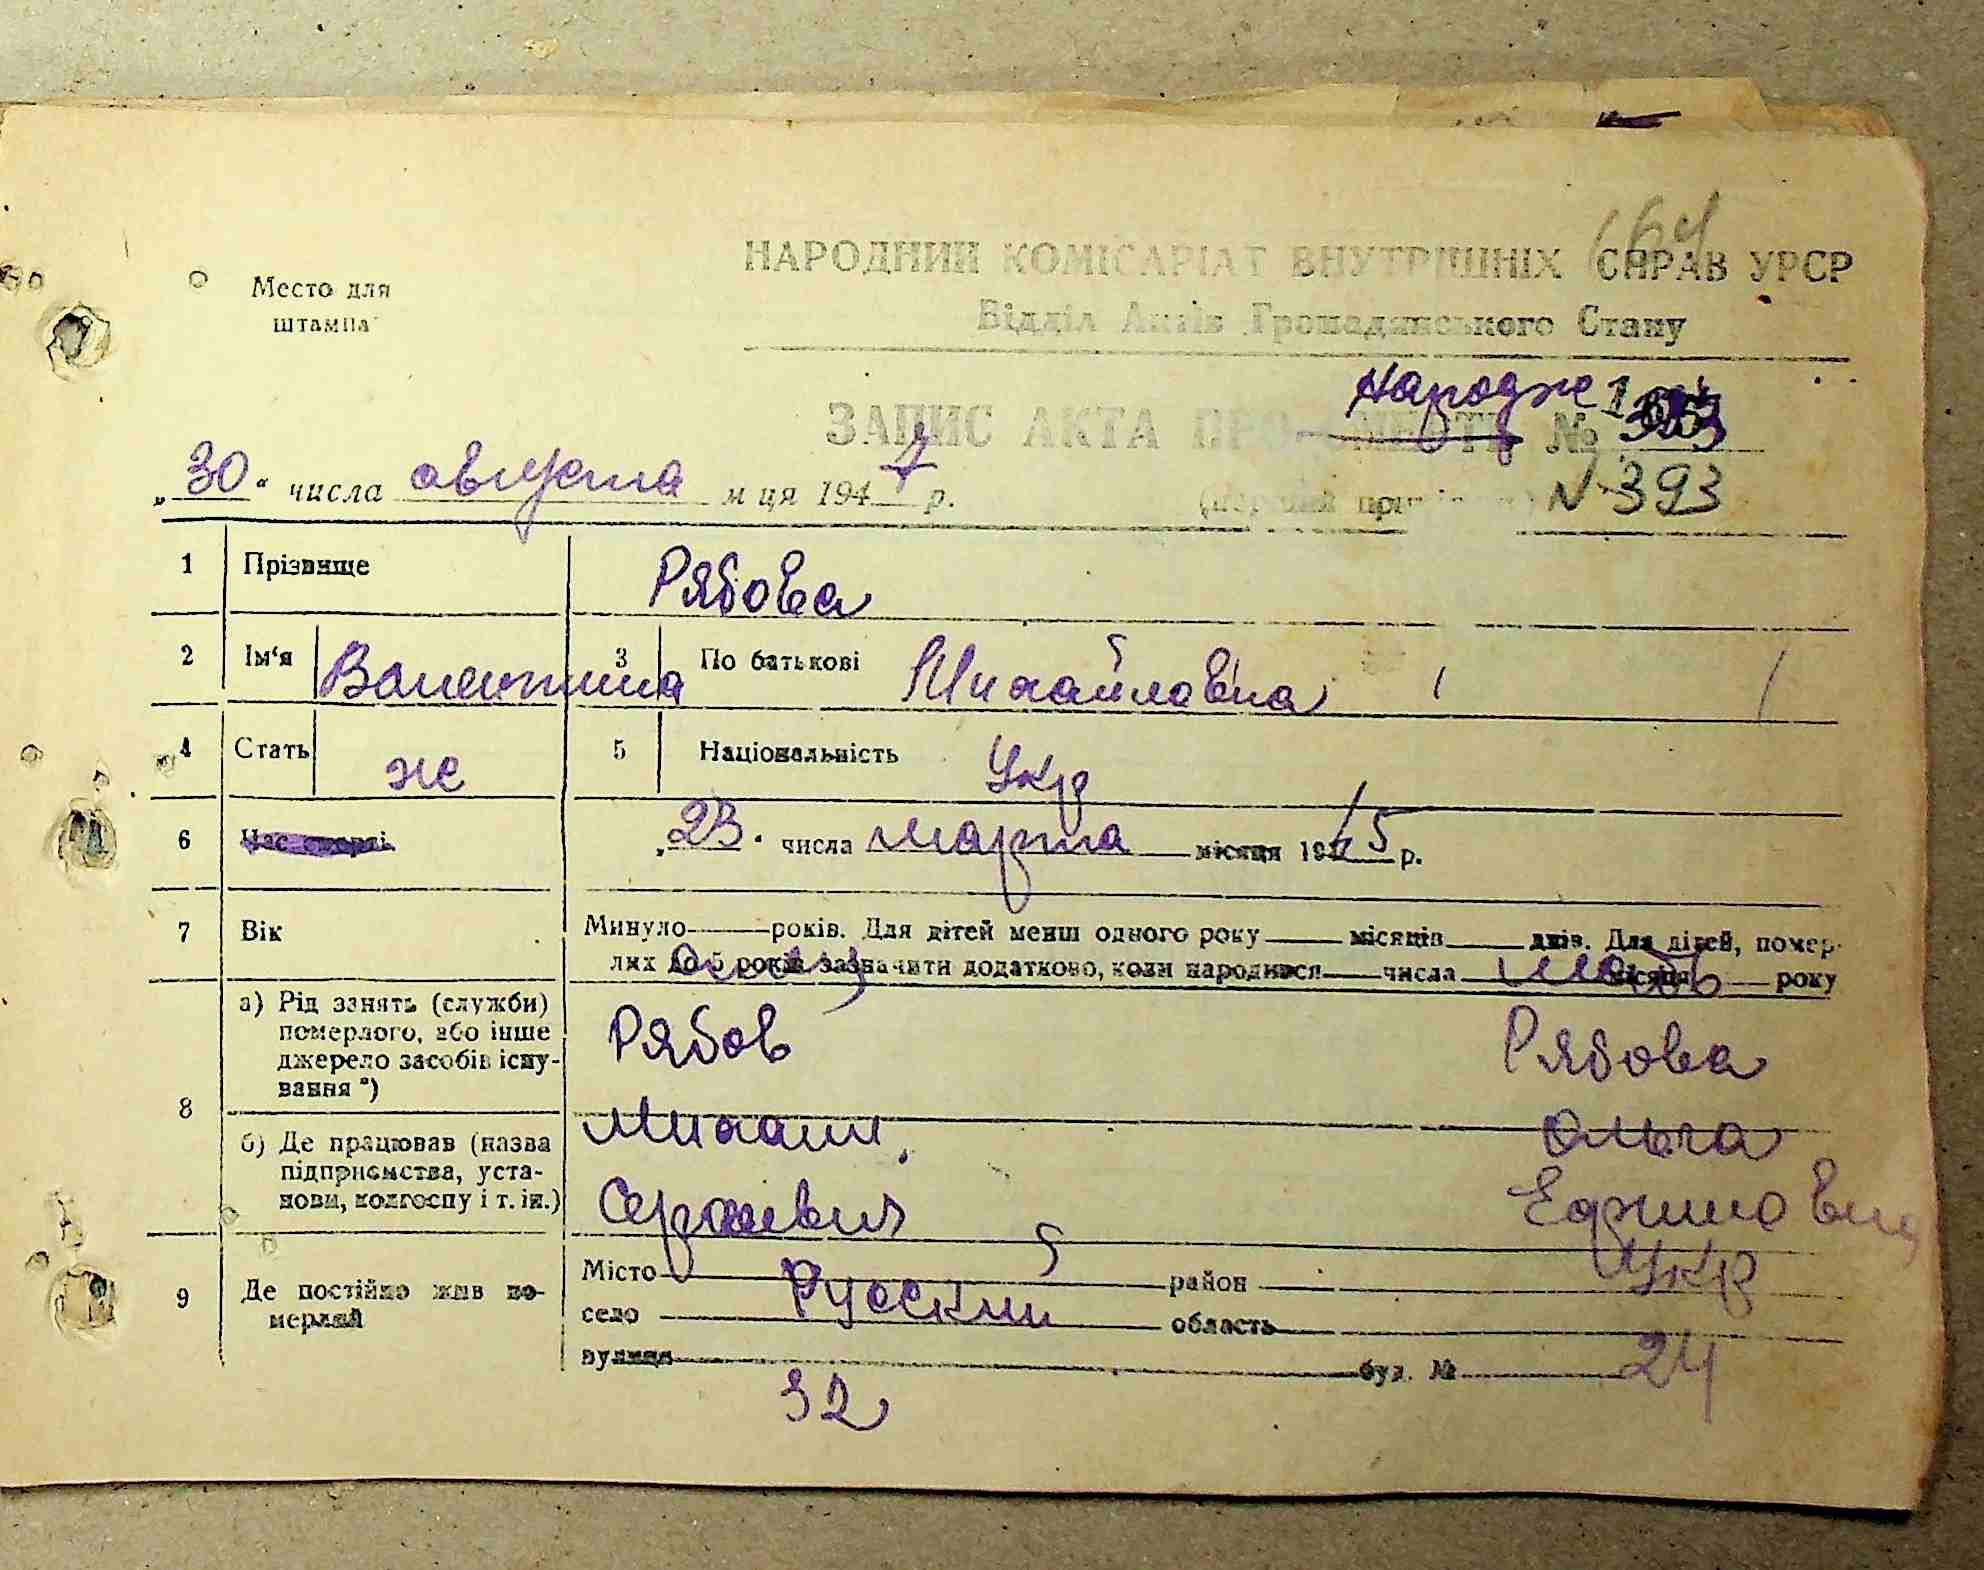 164
Место для
штампа
НАРОДНИЙ КОМІСАРІАТ ВНУТРІШНІХ СПРАВ УРСР
Відділ Актів Громадянського Стану
Народже
ЗАПИС АКТА ПРО СМЕРТЬ №
„30“ числа августа м ця 1947 р.
N 393
1 Прізвище Рябова
2 Ім'я Валентина 3 По батькові Михайловна
4 Стать ж 5 Національність Укр
6 Час смерті „23. числа марта місяця 1945 р.
7 Вік Минуло років. Для дітей менш одного року місяців днів. Для дітей, помер-
лих до 5 років зазначити додатково, коли народився числа місяця року
8 а) Рід занять (служби) померлого, або інше джерело засобів існу-вання *)
Рябов Рябова
Михаил Ольга
б) Де працював (назва підприємства, уста-нови, колгоспу і т. ін.)
Сергеевич Ефимовна
9 Де постійно жив по-мерлий
Місто район Укр
село Русский область
вулиця буд. № 24
32